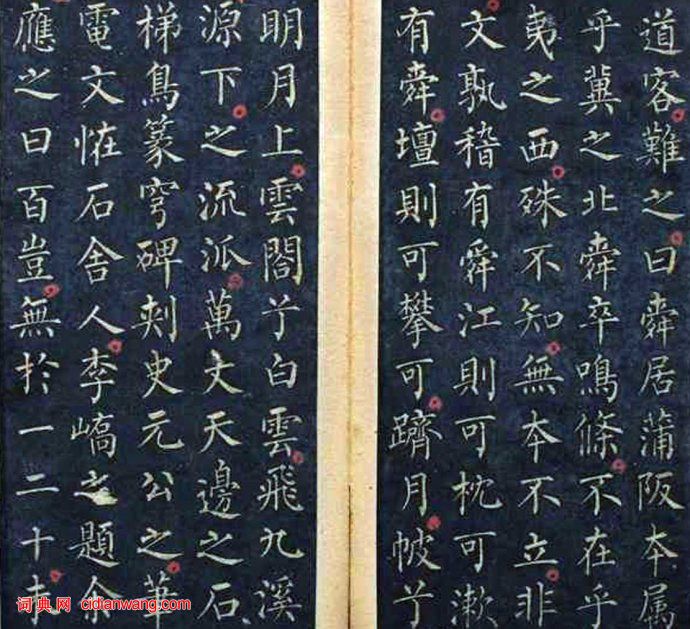 道客難之曰舜居蒲阪本属
乎冀之北舜卒鳴條不在乎
夷之西殊不知無本不立非
文孰稽有舜江則可枕可漱
有舜壇則可攀可躋月帔兮
明月上雲閣兮白雲飛九溪
源下之流派萬丈天邊之石
梯鳥篆穹碑刺史元公之華
電文恠石舍人李嶠之題余
應之曰百豈無於一二十
词典网 cidianwang.com